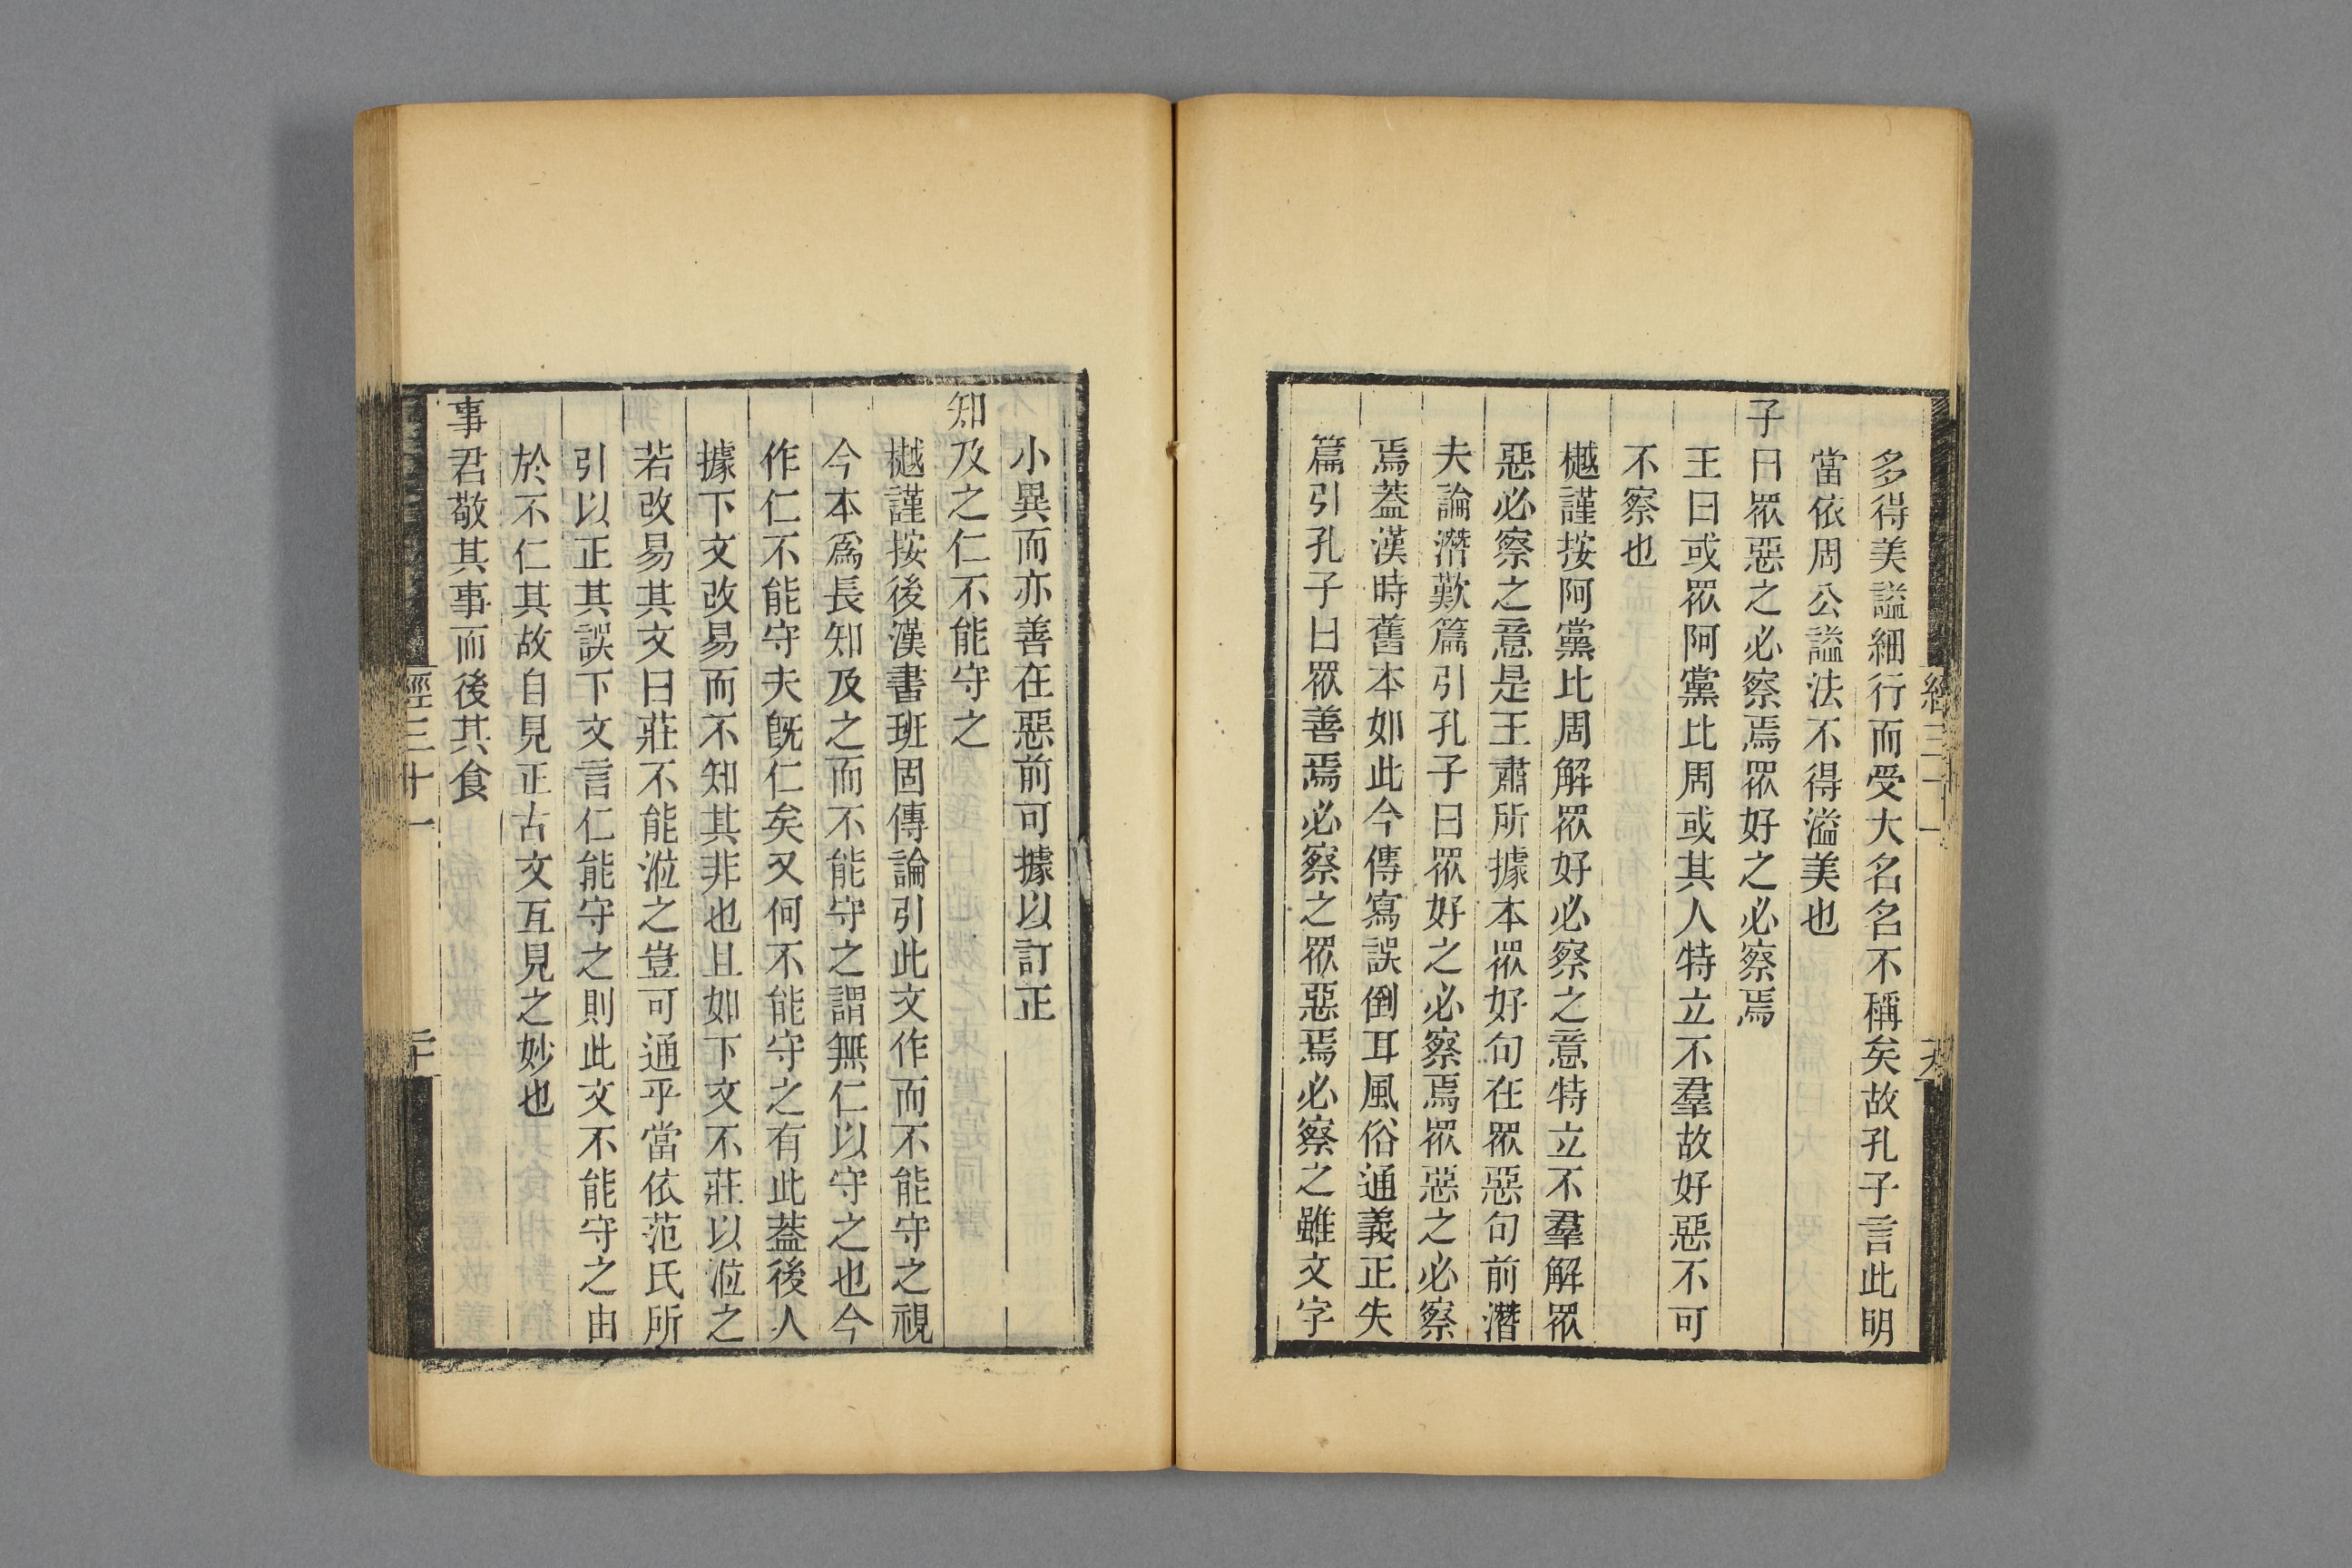 多得美謚細行而受大名名不稱矣故孔子言此明
當依周公謚法不得溢美也
子曰眾惡之必察焉眾好之必察焉
王曰或眾阿黨比周或其人特立不羣故好惡不可
不察也
樾謹按阿黨比周解眾好必察之意特立不羣解眾
惡必察之意是王肅所據本眾好句在眾惡句前潛
夫論潛歎篇引孔子曰眾好之必察焉眾惡之必察
焉蓋漢時舊本如此今傳寫誤倒耳風俗通義正失
篇引孔子曰眾善焉必察之眾惡焉必察之雖文字
小異而亦善在惡前可據以訂正
知及之仁不能守之
樾謹按後漢書班固傳論引此文作而不能守之視
今本爲長知及之而不能守之謂無仁以守之也今
作仁不能守夫旣仁矣又何不能守之有此蓋後人
據下文改易而不知其非也且如下文不莊以涖之
若改易其文曰莊不能涖之豈可通乎當依范氏所
引以正其誤下文言仁能守之則此文不能守之由
於不仁其故自見正古文互見之妙也
事君敬其事而後其食
經三十一